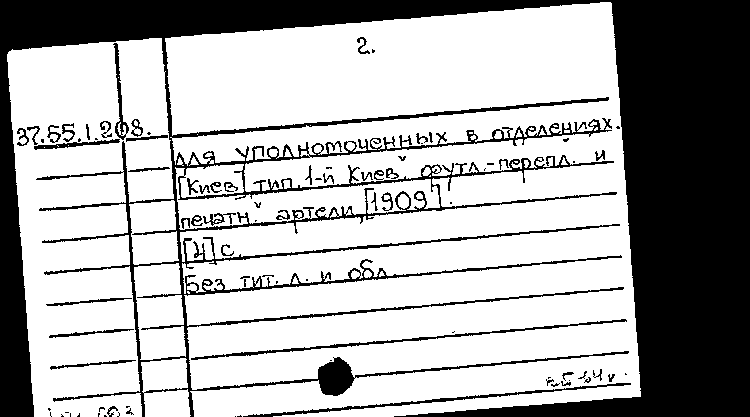 2.
37.55.1.208.
для уполномоченных в отделениях.
[Киев] тип. 1-й Киев. футл.-перепл. и
печатн. артели, [1909].
[4] с.
Без тит. л. и обл.